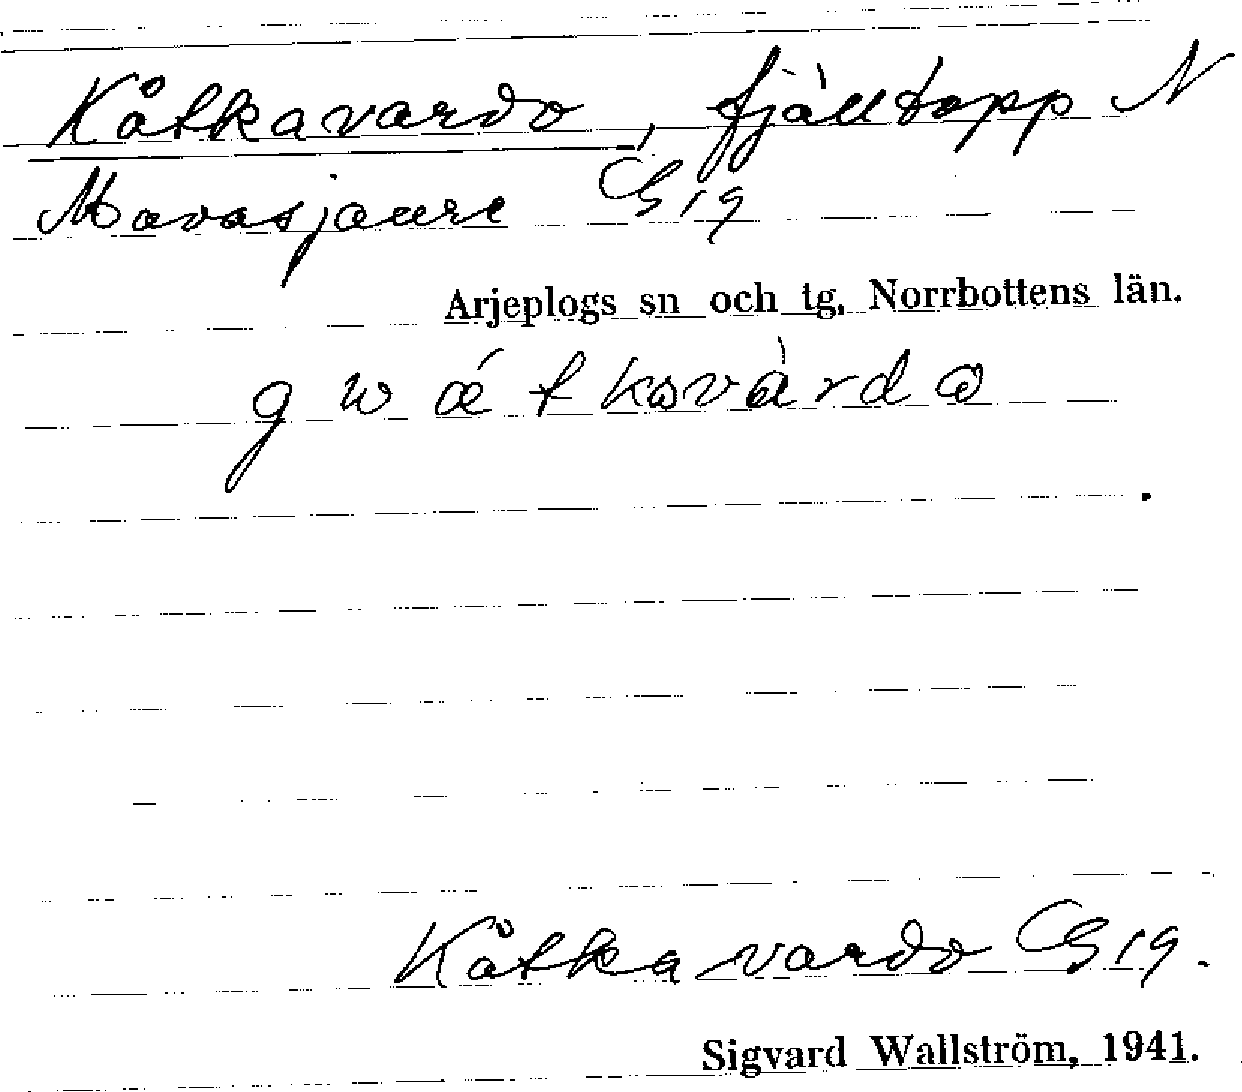 Kåtkavardo, fjälltopp N
Mavasjaure G 19
Arjeplogs sn och tg, Norrbottens län.
g w ǽ t kɷvàrdɷ
Kåtkavardo G 19.
Sigvard Wallström, 1941.